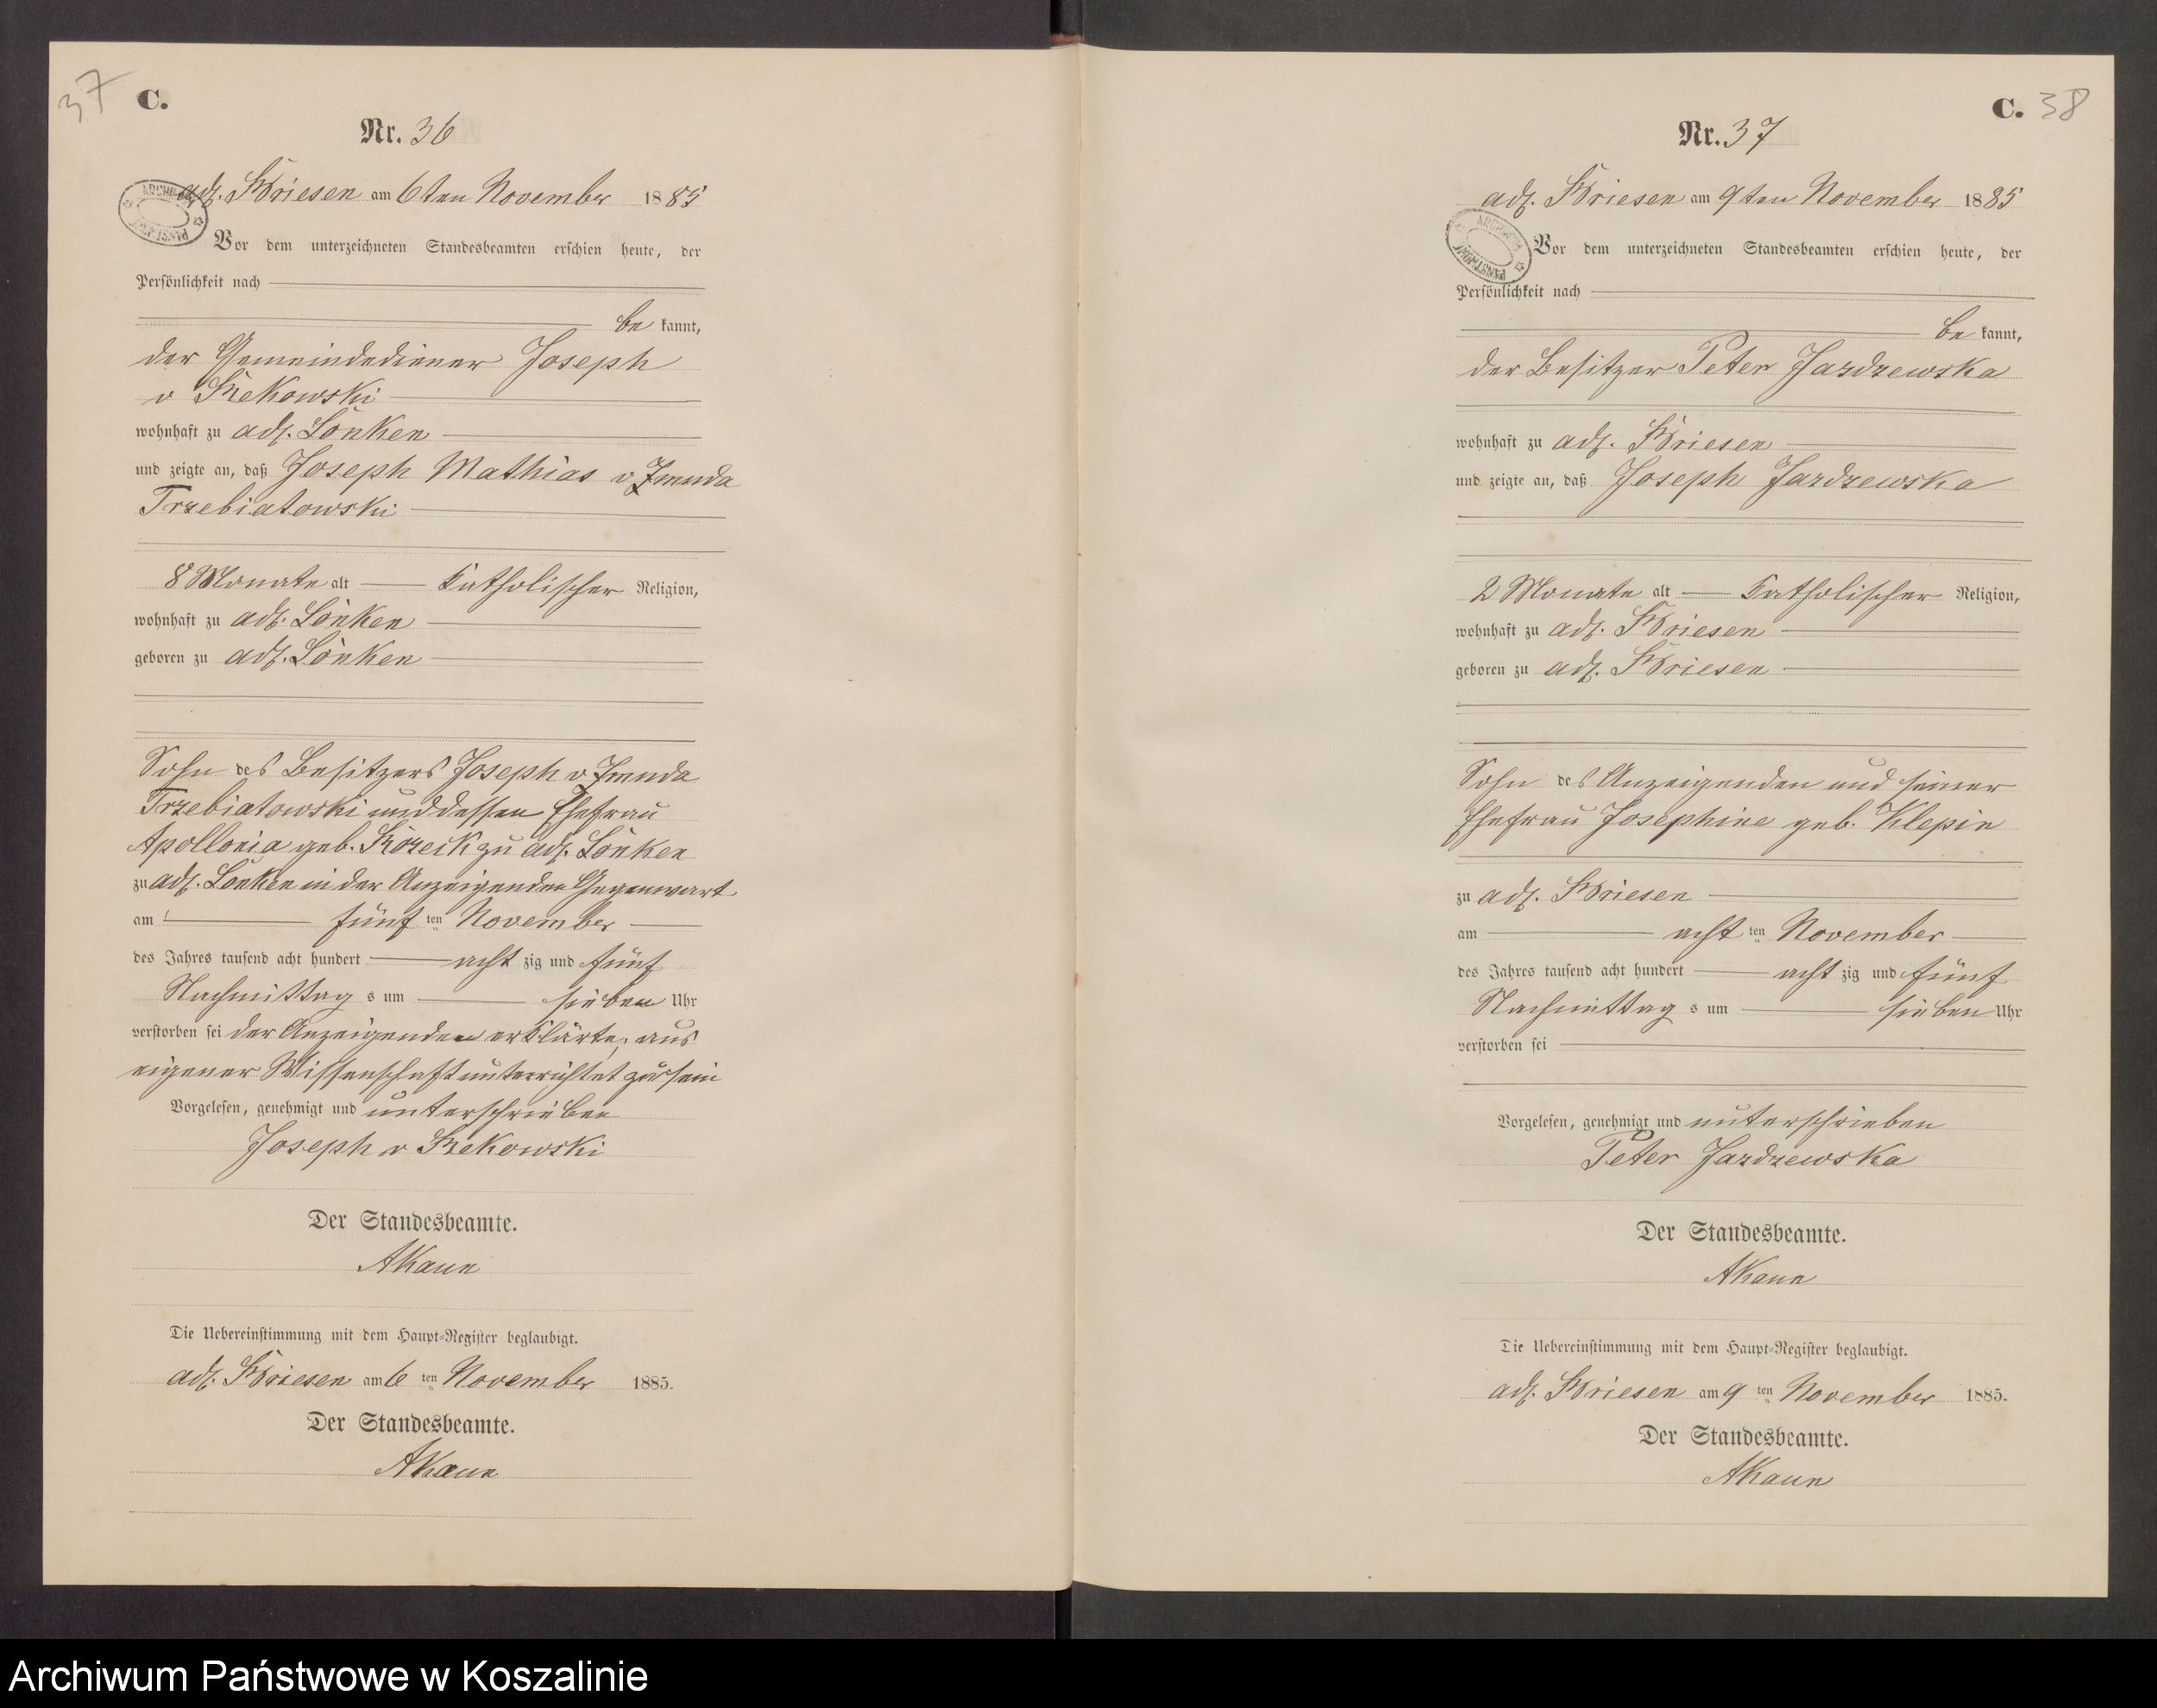 37
C.
Nr. 36
adl. Briesen am 6ten November 1885
Vor dem unterzeichneten Standesbeamten erschien heute, der
Persönlichkeit nach
be kannt,
der Gemeindediener Joseph
v Kekowski
wohnhaft zu adl. Lonken
und zeigte an, daß Joseph Mathias v Zmuda
Trzebiatowski
8 Monate alt katholischer Religion,
wohnhaft zu adl. Lonken
geboren zu adl. Lonken
Sohn des Besitzers Joseph v Zmuda
Trzebiatowski und dessen Ehefrau
Apollonia geb. zu adl. Lonken
zu adl. Lonken in der Anzeigenden Gegenwart
am fünf ten November
des Jahres tausend acht hundert acht zig und fünf
Nachmittag s um sieben Uhr
verstorben sei der Anzeigenden erklärte, aus
eigener Wissenschaft unterrichtet zu sein
Vorgelesen, genehmigt und unterschrieben
Joseph v Kekowski
Der Standesbeamte.
AKaun
Die Uebereinstimmung mit dem Haupt-Register beglaubigt.
adl. Briesen am 6 ten November 1885.
Der Standesbeamte.
AKaun
C. 38
Nr. 37
adl. Briesen am 9ten November 1885
Vor dem unterzeichneten Standesbeamten erschien heute, der
Persönlichkeit nach
be kannt,
der Besitzer Peter Jazdzewska
wohnhaft zu adl. Briesen
und zeigte an, daß Joseph Jazdzewska
2 Monate alt katholischer Religion,
wohnhaft zu adl. Briesen
geboren zu adl. Briesen
Sohn des Anzeigenden und seiner
Ehefrau Josephine geb. Klepin
zu adl. Briesen
am acht ten November
des Jahres tausend acht hundert acht zig und fünf
Nachmittag s um sieben Uhr
verstorben sei
Vorgelesen, genehmigt und unterschrieben
Peter Jazdzewska
Der Standesbeamte.
AKaun
Die Uebereinstimmung mit dem Haupt-Register beglaubigt.
adl. Briesen am 9 ten November 1885.
Der Standesbeamte.
AKaun
Archiwum Państwowe w Koszalinie